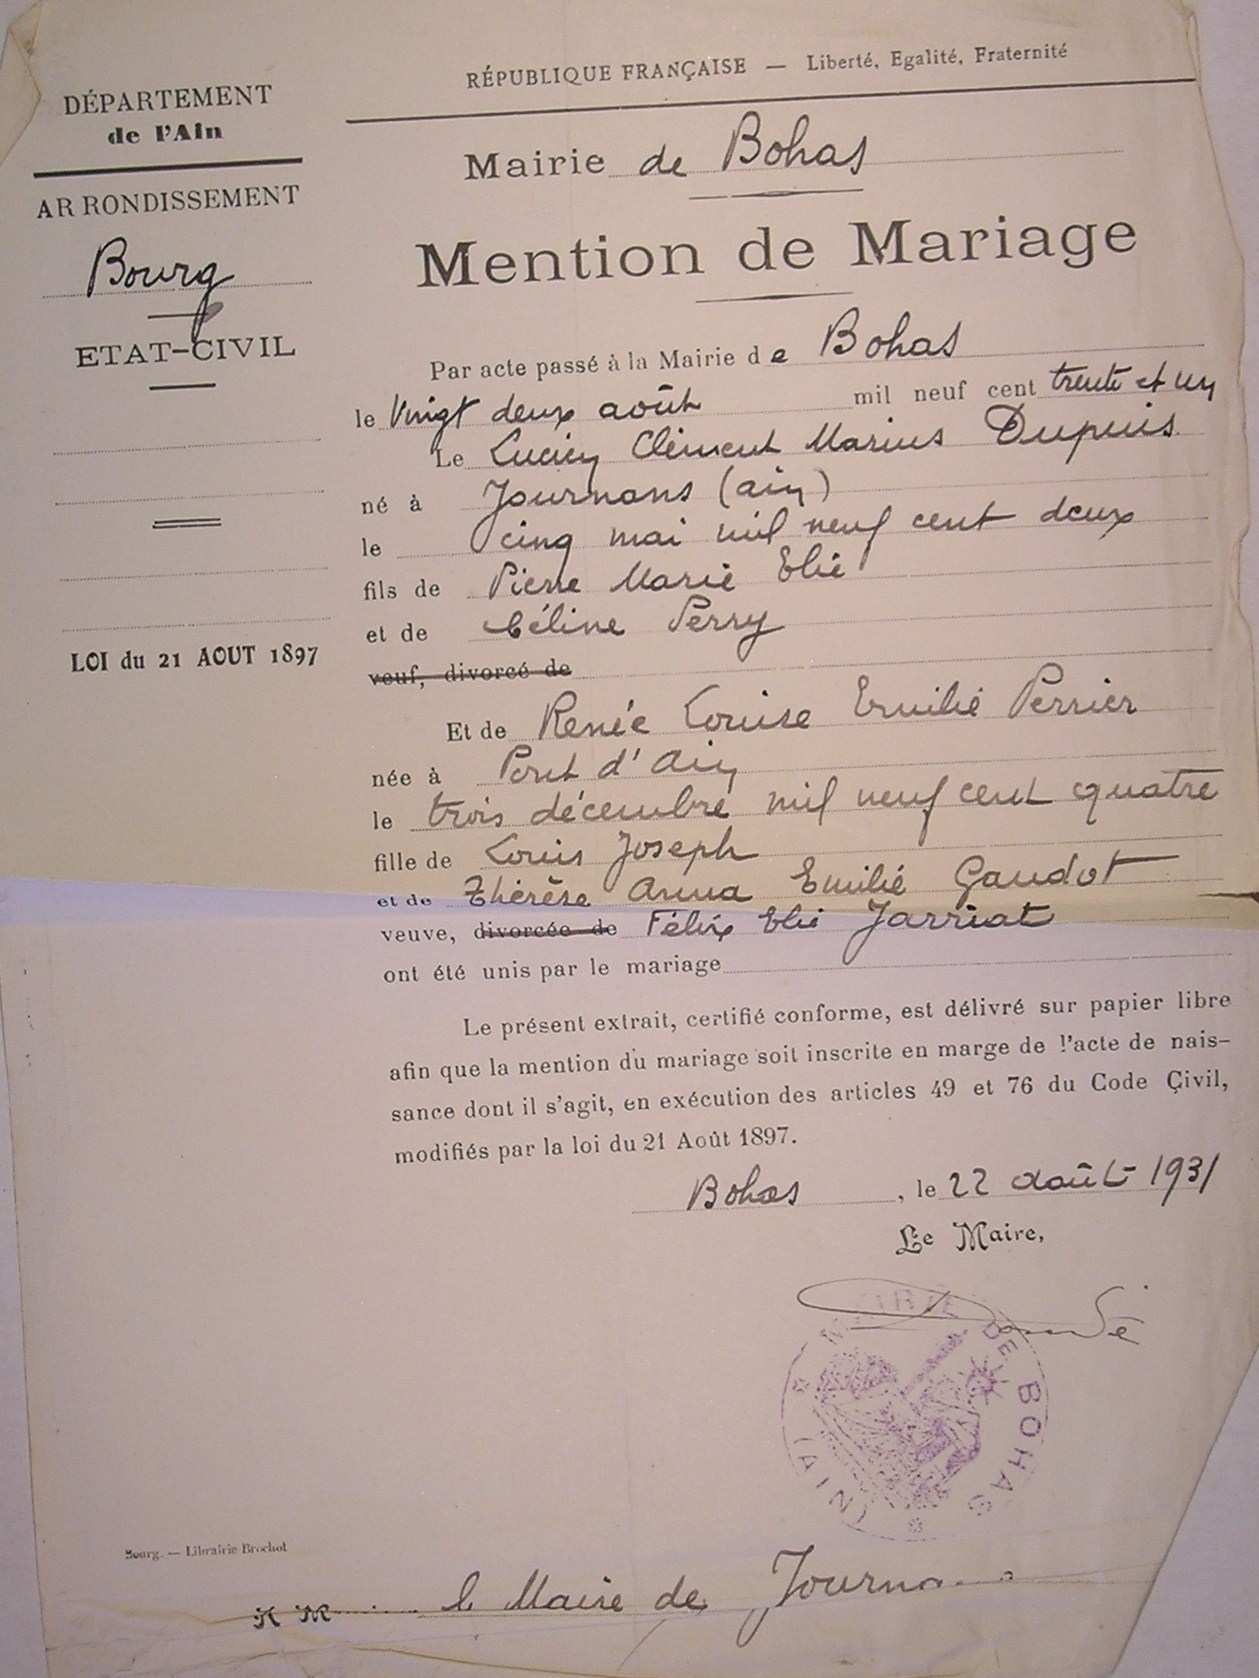 RÉPUBLIQUE FRANÇAISE — Liberté, Egalité, Fraternité
DÉPARTEMENT
de l'Ain
ARRONDISSEMENT
Bourg
ETAT-CIVIL
LOI du 21 AOUT 1897
Mairie de Bohas
Mention de Mariage
Par acte passé à la Mairie de Bohas
le Vingt deux août mil neuf cent trente et un
Le Lucien Clément Marius Dupuis
né à Journans (ain)
le cinq mai mil neuf cent deux
fils de Pierre Marie Elie
et de Céline Perry
veuf, divorcé de
Et de Renée Louise Emilie Perrier
née à Pont d'Ain
le trois décembre mil neuf cent quatre
fille de Louis Joseph
et de Thérèse Anna Emilie Gaudot
veuve, divorcée de Félix Elie Jarriat
ont été unis par le mariage
Le présent extrait, certifié conforme, est délivré sur papier libre
afin que la mention du mariage soit inscrite en marge de l'acte de nais-
sance dont il s'agit, en exécution des articles 49 et 76 du Code Çivil,
modifiés par la loi du 21 Août 1897.
Bohas, le 22 août 1931
Le Maire,
MAIRIE DE BOHAS
(AIN)
Bourg. — Librairie Brochot
A M le Maire de Journans